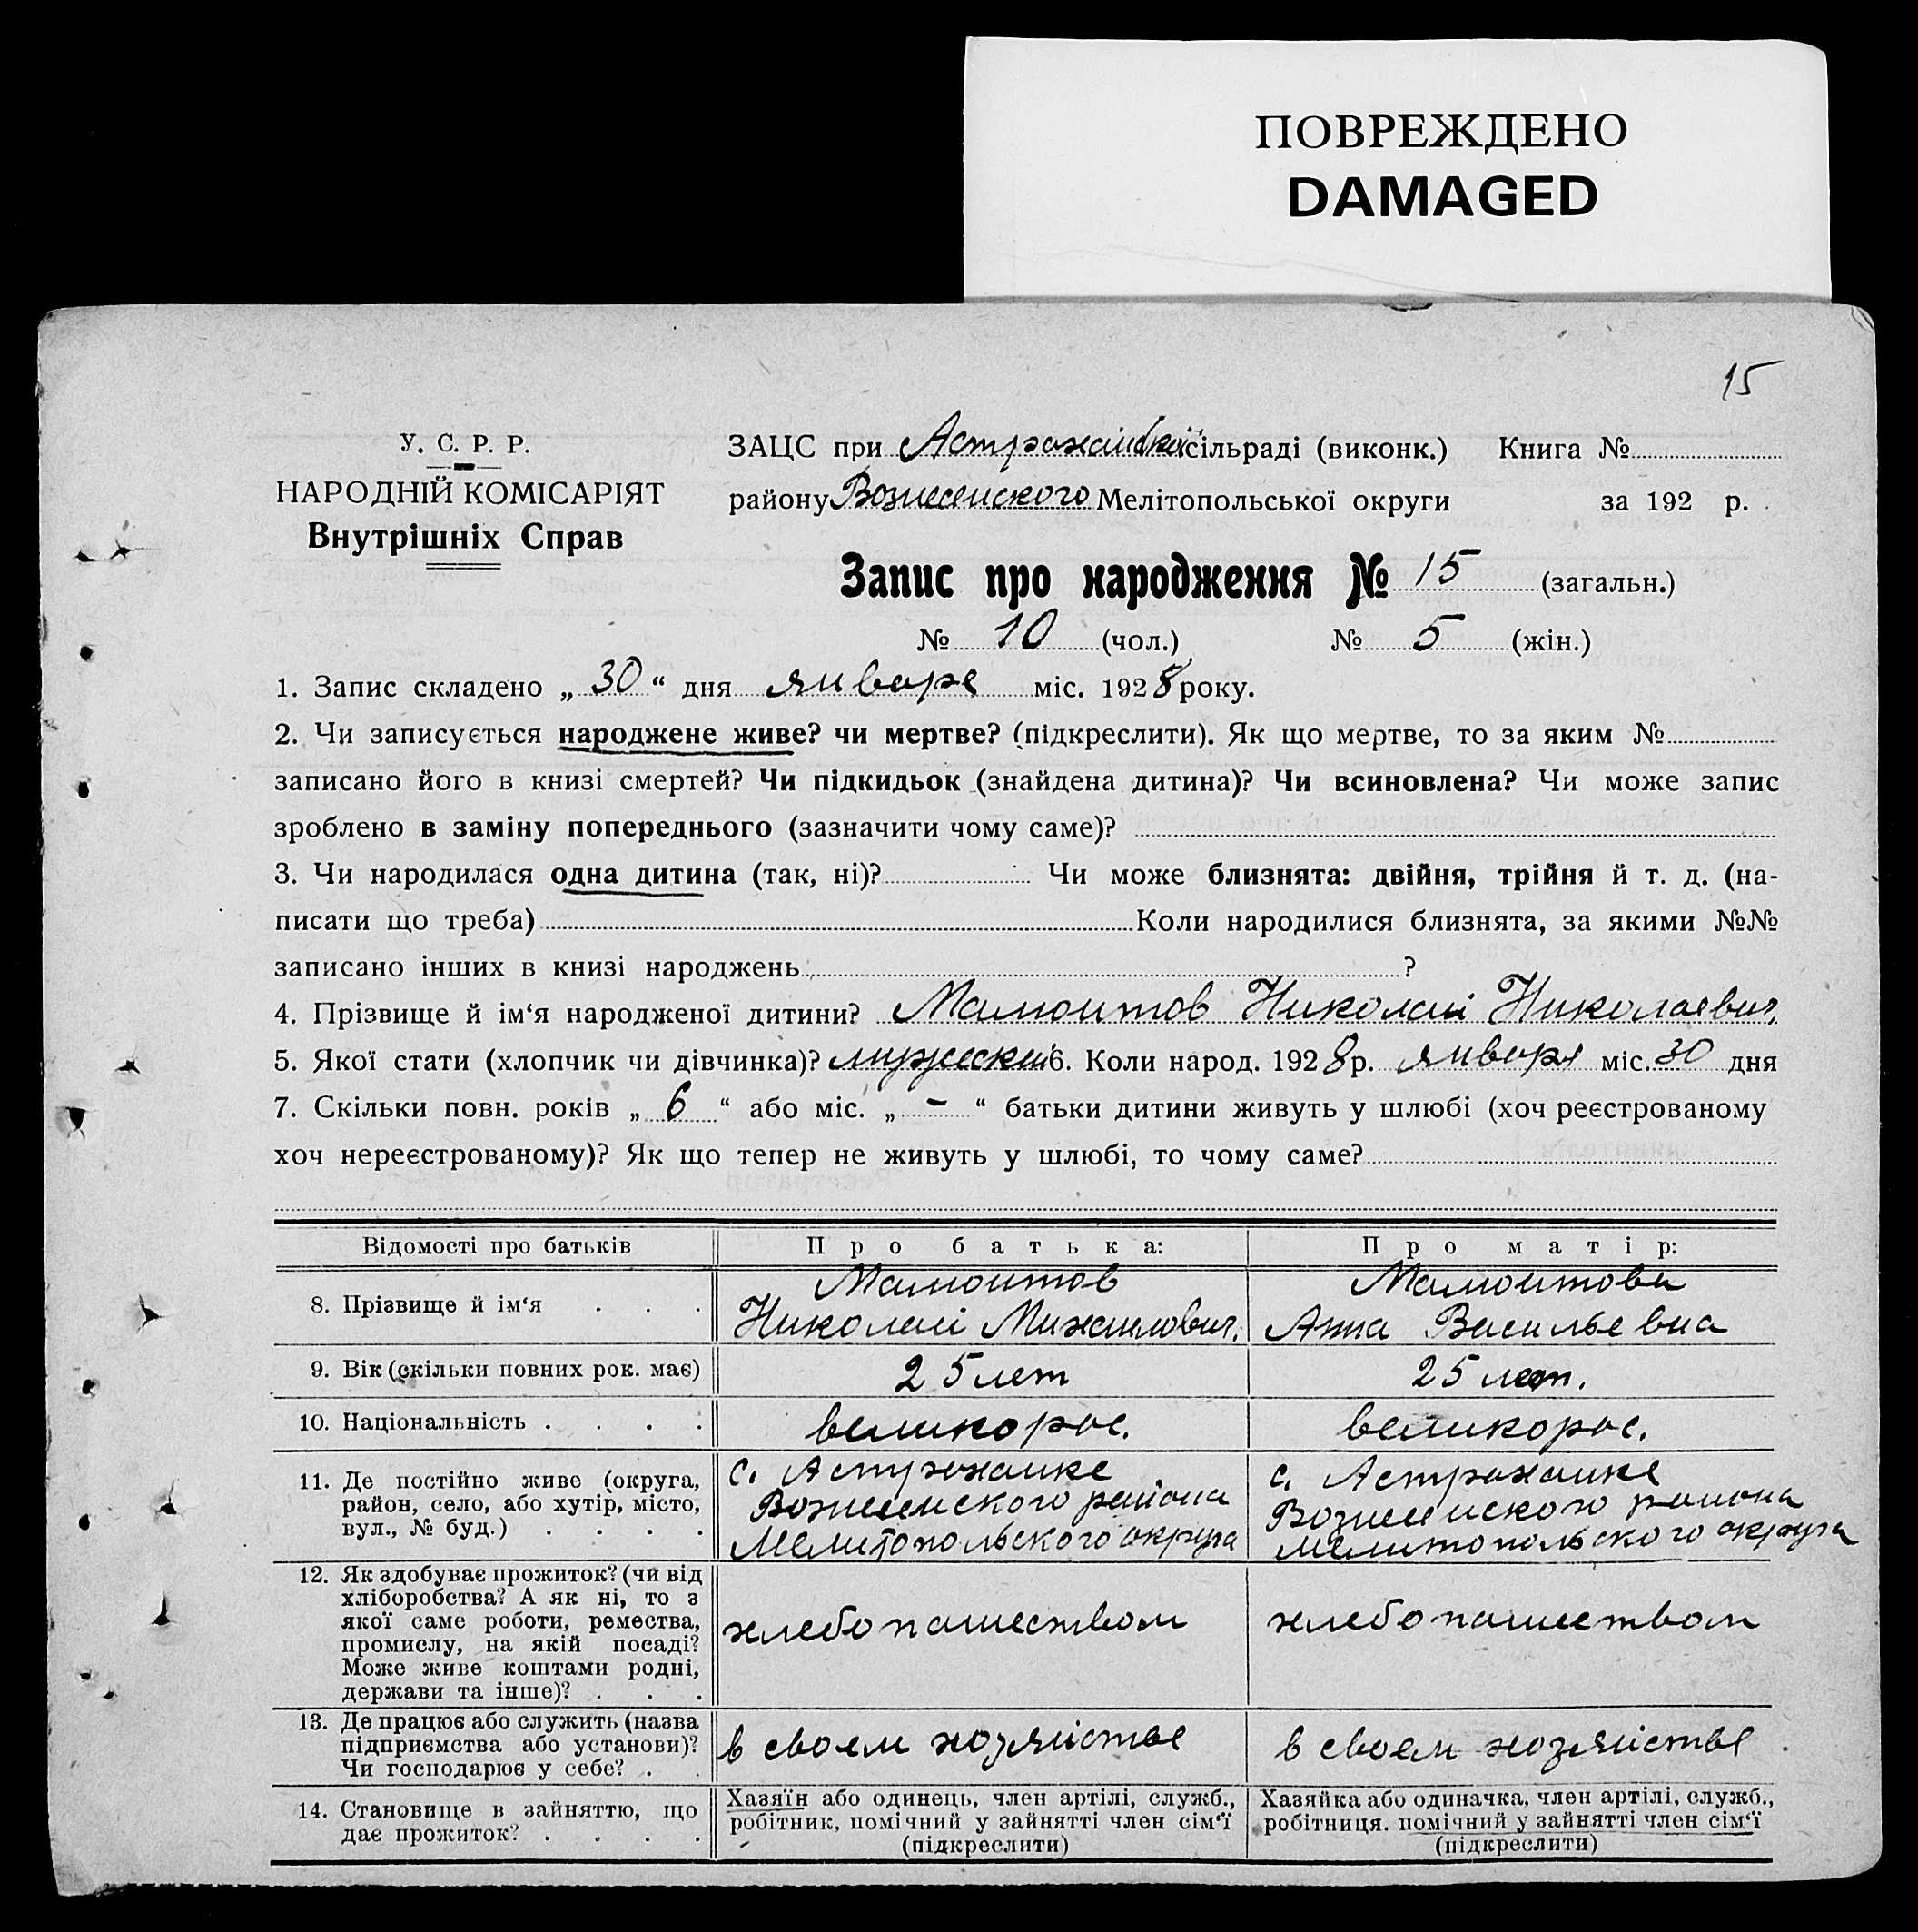 ПОВРЕЖДЕНО
DAMAGED
15
У. С. Р. Р.
НАРОДНІЙ КОМІСАРІЯТ
Внутрішніх Справ
ЗАЦС при Астраханській сільраді (виконк.) Книга №
району Вознесенского Мелітопольської округи за 192 р.
Запис про народження № 15 (загальн.)
№ 10 (чол.) № 5 (жін.)
1. Запис складено „ 30 “ дня января міс. 1928 року.
2. Чи записується народжене живе? чи мертве? (підкреслити). Як що мертве, то за яким №
записано його в книзі смертей? Чи підкидьок (знайдена дитина)? Чи всиновлена? Чи може запис
зроблено в заміну попереднього (зазначити чому саме)?
3. Чи народилася одна дитина (так, ні)? Чи може близнята: двійня, трійня й т. д. (на-
писати що треба) Коли народилися близнята, за якими №№
записано інших в книзі народжень ?
4. Прізвище й ім‘я народженої дитини? Мамонтов Николай Николаевич.
5. Якої стати (хлопчик чи дівчинка)? мужеский 6. Коли народ. 1928 р. января міс. 30 дня
7. Скільки повн. років „ 6 “ або міс. „ - “ батьки дитини живуть у шлюбі (хоч реєстрованому
хоч нереєстрованому)? Як що тепер не живуть у шлюбі, то чому саме?
Відомості про батьків
Про батька:
Про матір:
8. Прізвище й ім‘я . . .
Мамонтов
Николай Михаилович.
Мамонтова
Анна Васильевна
9. Вік (скільки повних рок. має)
25 лет
25 лет.
10. Національність . . . .
великорос.
великорос.
11. Де постійно живе (округа,
район, село, або хутір, місто,
вул., № буд.) . . . .
с. Астраханке
Вознесенского района
Мелитопольского округа
с. Астраханке
Вознесенского района
Мелитопольского округа
12. Як здобуває прожиток? (чи від
хліборобства? А як ні, то з
якої саме роботи, ремества,
промислу, на якій посаді?
Може живе коштами родні,
держави та інше)? . . .
хлебопашеством
хлебопашеством
13. Де працює або служить (назва
підприємства або установи)?
Чи господарює у себе? . .
в своем хозяистве
в своем хозяистве
14. Становище в зайняттю, що
дає прожиток? . . . .
Хазяїн або одинець, член артілі, служб.,
робітник, помічний у зайнятті член сім‘ї
(підкреслити)
Хазяйка або одиначка, член артілі, служб.,
робітниця. помічний у зайнятті член сім‘ї
(підкреслити)